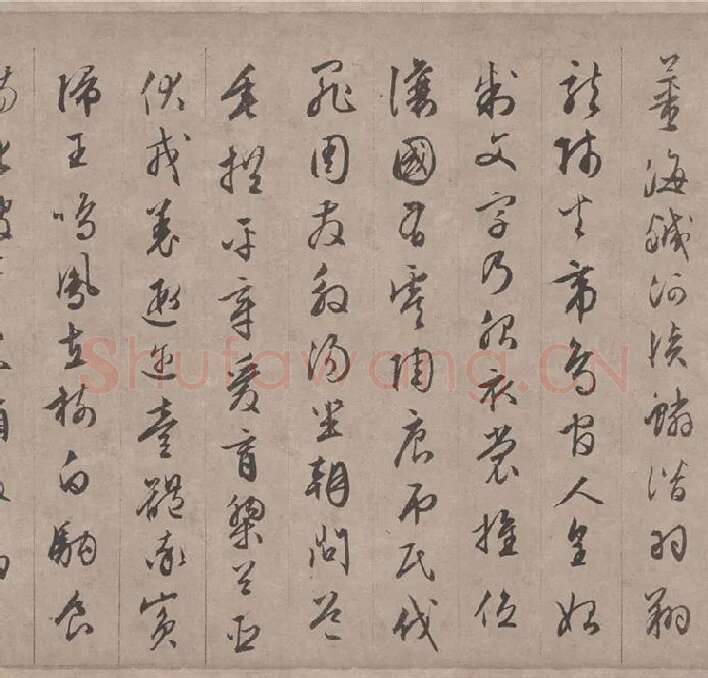 薑海鹹河淡鱗潛羽翔
龍師火帝鳥官人皇始
制文字乃服衣裳推位
讓國有虞陶唐弔民伐
罪周發殷湯坐朝問道
垂拱平章愛育黎首臣
伏戎羌遐邇壹體率賓
歸王鳴鳳在樹白駒食
Shufawang.CN